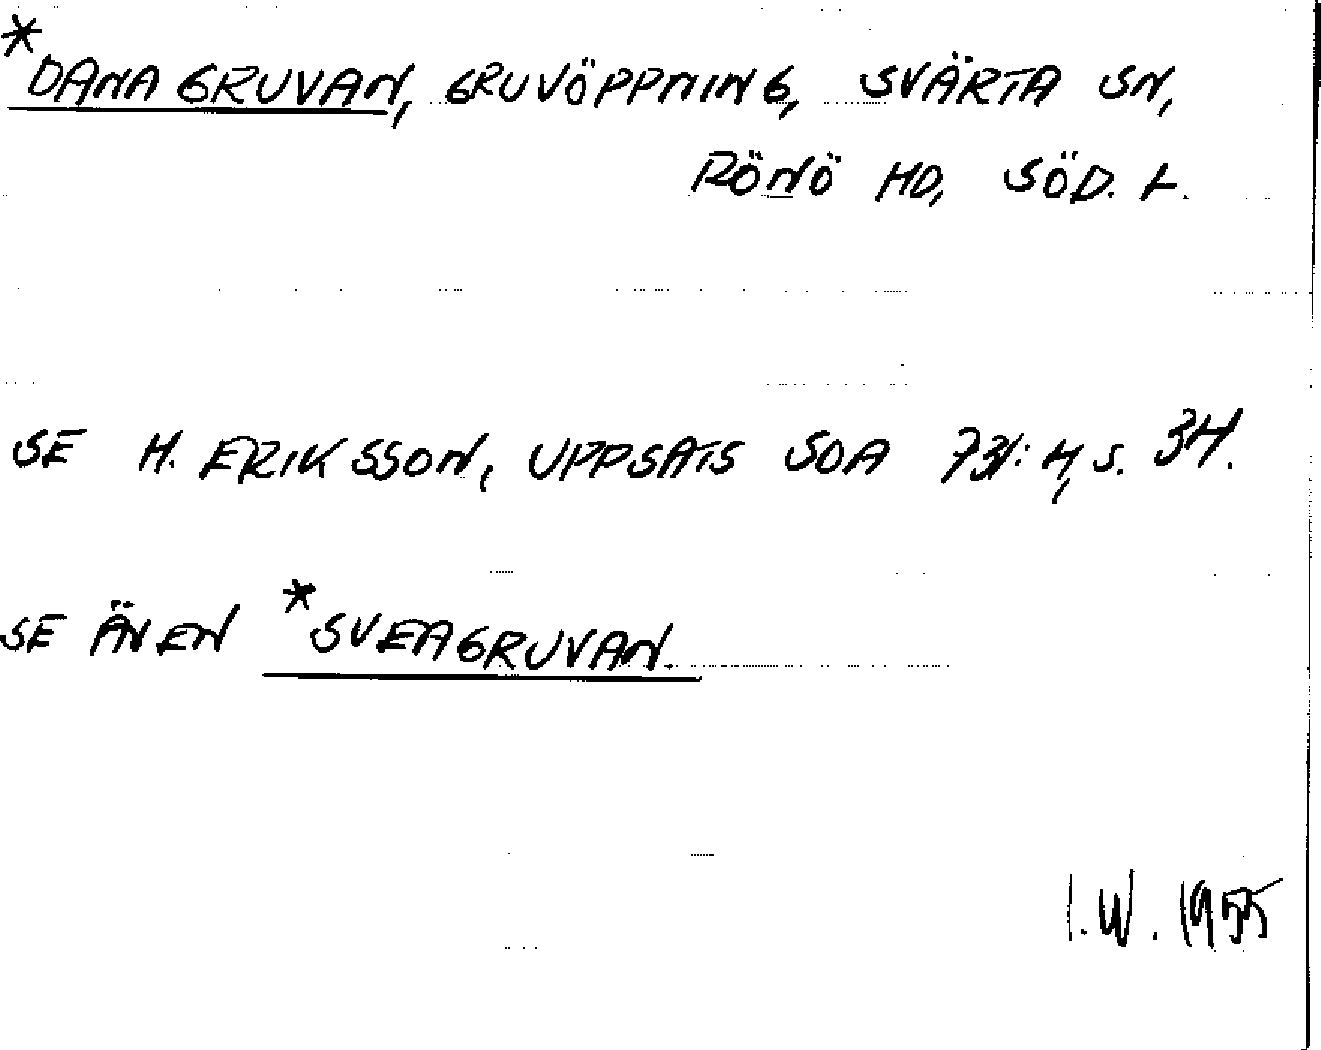 *DANAGRUVAN, GRUVÖPPNING, SVÄRTA SN,
RÖNÖ HD, SÖD. L.
SE H. ERIKSSON, UPPSATS SOA 731:4, S. 34.
SE ÄVEN *SVEAGRUVAN.
I.W. 1955